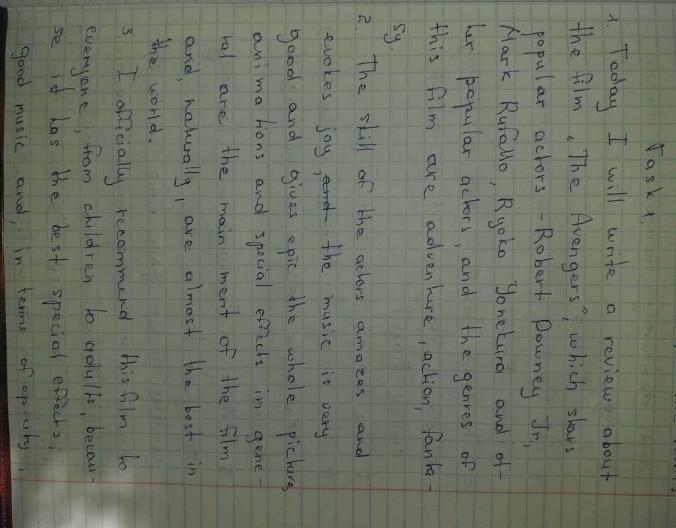 Task 1.
1. Today I will write a review about
the film „The Avengers", which stars
popular actors - Robert Downey Jr,
Mark Ruffallo, Ryoko Yonekura and ot-
her popular actors, and the genres of
this film are adventure, action, fanta-
sy.
2. The skill of the actors amazes and
evokes joy, and the music is very
good and gives epic the whole picture,
animations and special effects in gene-
ral are the main merit of the film
and, naturally, are almost the best in
the world.
3. I officially recommend this film to
everyone, from children to adults, becau-
se it has the best special effects,
good music and, in terms of epicity,